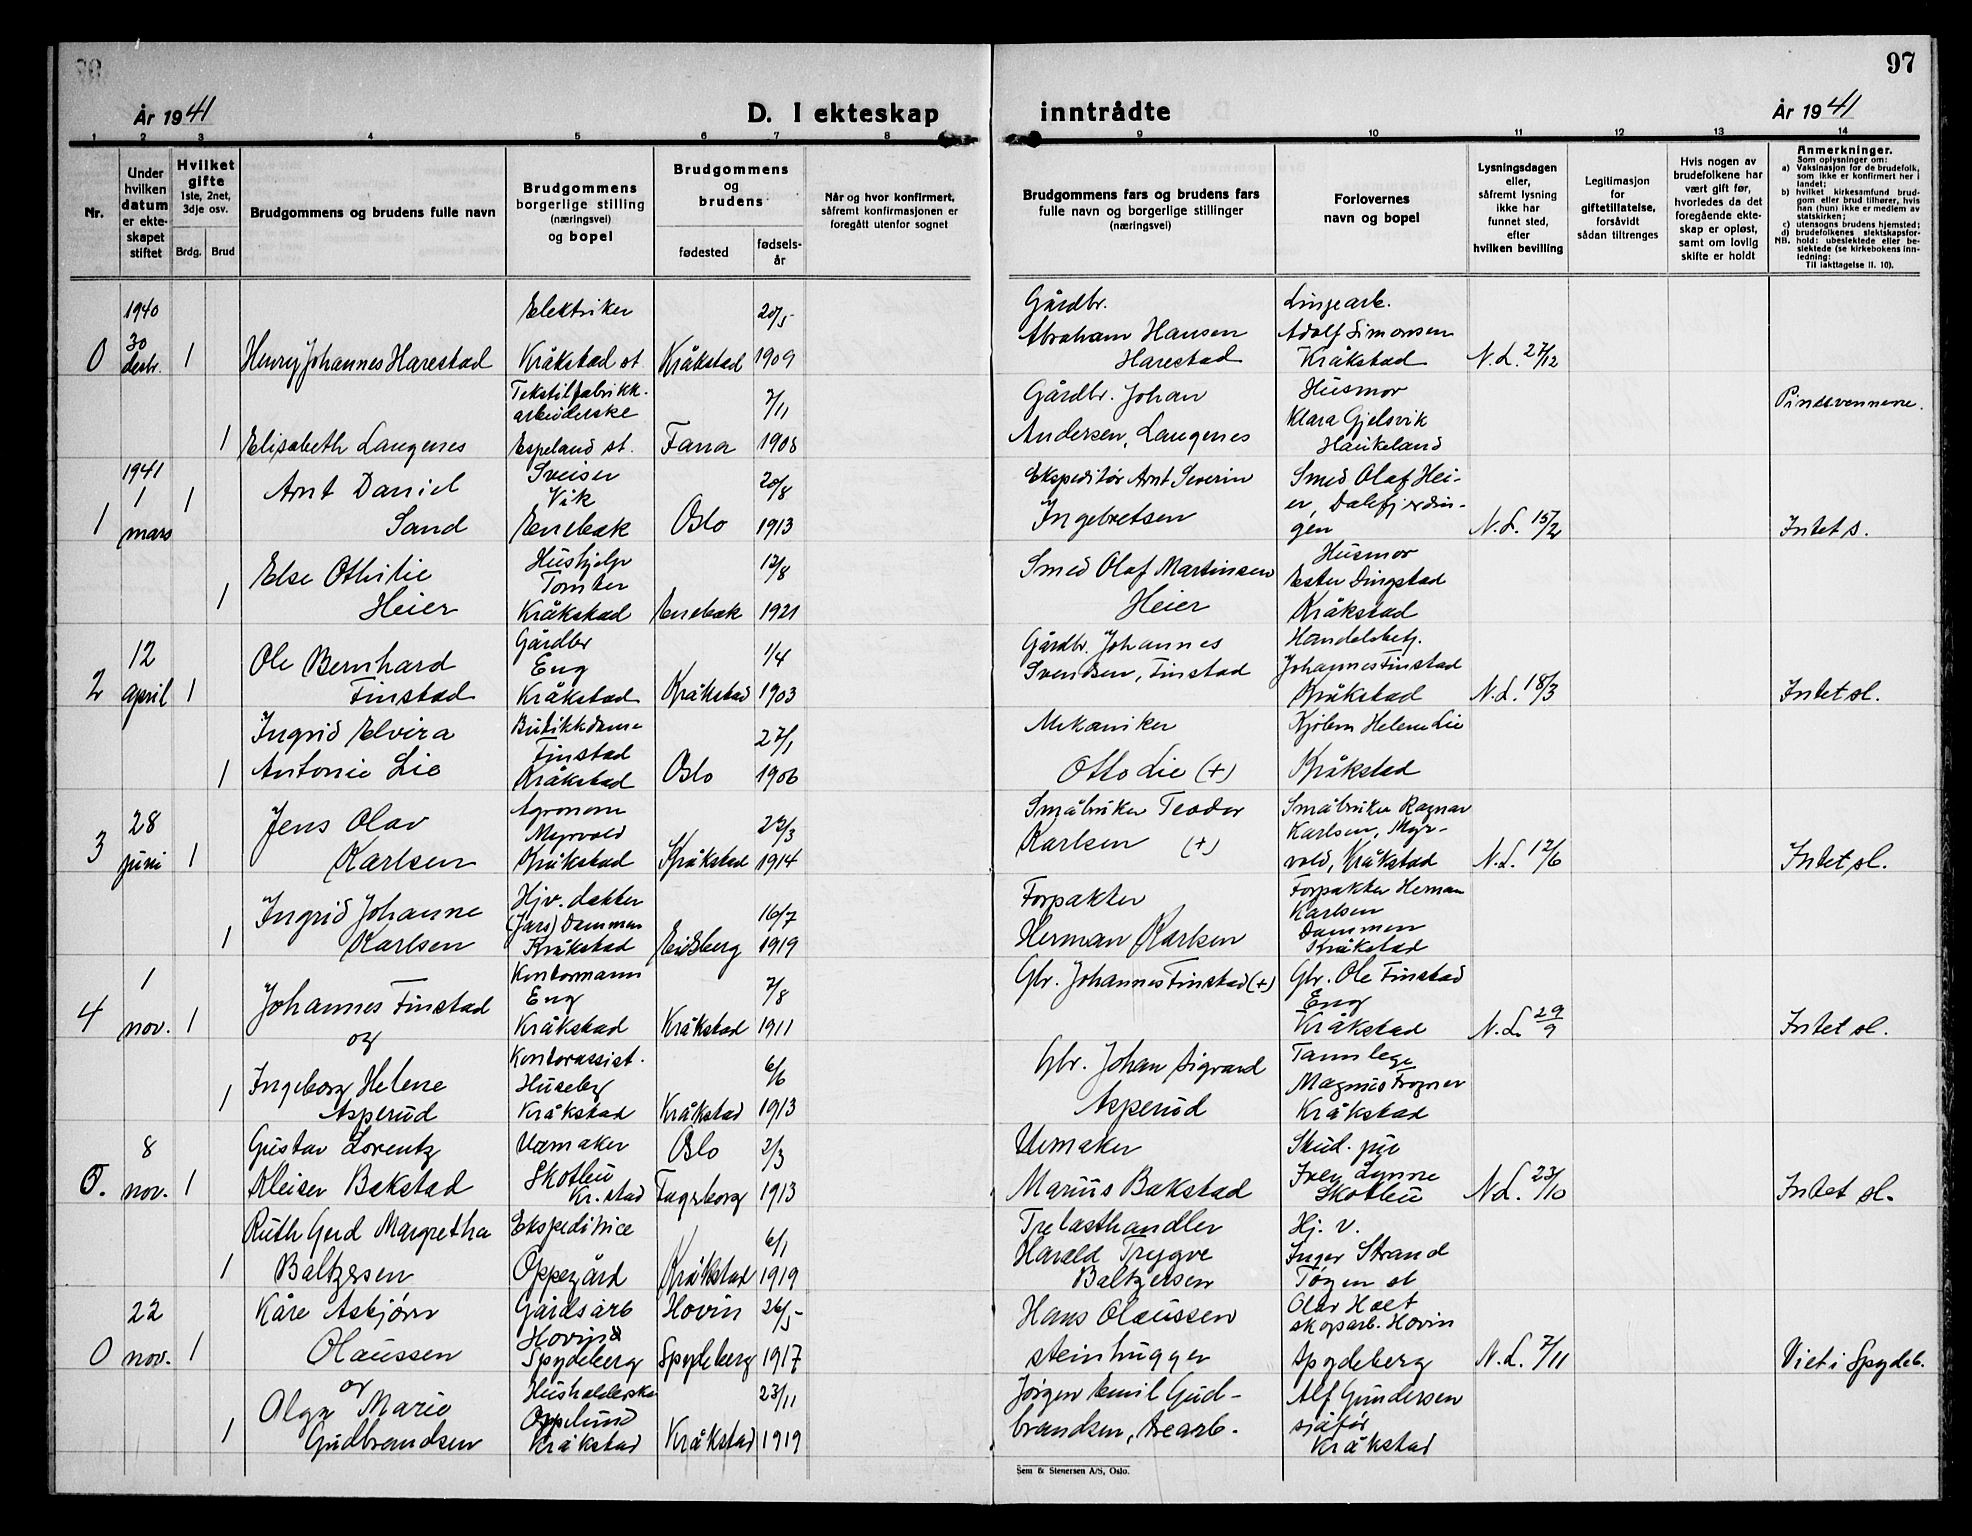 97
År 1941
D. I ekteskap inntrådte
År 1941
1 2 3 4 5 6 7 8 9 10 11 12 13 14
Nr.
Under hvilken datum er ekteskapet stiftet
Hvilket gifte
1ste, 2net, 3dje osv.
Brdg. Brud
Brudgommens og brudens fulle navn
Brudgommens borgerlige stilling (næringsvei) og bopel
Brudgommens og brudens
fødested
fødselsår
Når og hvor konfirmert, såfremt konfirmasjonen er foregått utenfor sognet
Brudgommens fars og brudens fars fulle navn og borgerlige stillinger (næringsvei)
Forlovernes navn og bopel
Lysningsdagen eller, såfremt lysning ikke har funnet sted, efter hvilken bevilling
Legitimasjon for giftetillatelse, forsåvidt sådan tiltrenges
Hvis nogen av brudefolkene har vært gift før, hvorledes da det foregående ekteskap er opløst, samt om lovlig skifte er holdt
Anmerkninger.
Som oplysninger om:
a) Vaksinasjon for de brudefolk, som ikke er konfirmert her i landet;
b) hvilket kirkesamfund brudgom eller brud tilhører, hvis han (hun) ikke er medlem av statskirken;
c) utensogns brudens hjemsted;
d) brudefolkenes slektskapsforhold: ubeslektede eller beslektede (se kirkebokens innledning:
NB.
Til iakttagelse II. 10).
1940 Elektriker 20/5 Gårdbr. Linjearb.
30 Abraham Hansen Adolf Simonsen
0 desbr. 1 Henry Johannes Harestad Kråkstad st Kråkstad 1909 Harestad Kråkstad N.L. 27/12
Tekstilfabrikk- 7/11 Gårdbr. Johan Husmor Pinsevennene.
arbeiderske Klara Gjelsvik
1 Elisabeth Langenes Espeland st. Fana 1908 Andersen, Langenes Haukeland
1941 Arnt Daniel Sveiser 20/8 Ekspeditør Arnt Severin Smed Olaf Hei-
1 1 Vik er, Dalefjerdin-
1 mars Sand Enebak Oslo 1913 Ingebretsen gen N.L. 15/2 Intet s.
Else Othilie Hushjelp 12/8 Smed Olaf Martinsen Husmor
Tomter Ester Dingstad
1 Heier Kråkstad Enebak 1921 Heier Kråkstad
12 Ole Bernhard Gårdbr 1/4 Gårdbr. Johannes Handelsbetj.
Eng Svendsen, Finstad Johannes Finstad
2 april 1 Finstad Kråkstad Kråkstad 1903 Kråkstad N.L. 18/3 Intet sl.
Ingrid Elvira Butikkdame 27/1 Mekaniker Kjøbm Helene Lie
Finstad
1 Antonie Lie Kråkstad Oslo 1906 Otto Lie (+) Kråkstad
28 Jens Olav Agronom 22/3 Småbruker Teodor Småbruker Ragnar
Myrvold Karlsen (+) Karlsen, Myr-
3 juni 1 Karlsen Kråkstad Kråkstad 1914 vold, Kråkstad N.L. 12/6 Intet sl.
Ingrid Johanne Hjv. datter 16/7 Forpakter Forpakter Herman
(fars) Dammen Karlsen
1 Karlsen Kråkstad Eidsberg 1919 Herman Karlsen Dammen
Kråkstad
1 Johannes Finstad Kontormann 7/8 Gbr. Johannes Finstad (+) Gbr. Ole Finstad
Eng Eng
4 nov. 1 og Kråkstad Kråkstad 1911 Kråkstad N.L. 29/9 Intet sl.
Ingeborg Helene Kontorassist. 6/6 Gbr. Johan Sigvard Tannlege
Huseby Magnus Frogner
1 Asperud Kråkstad Kråkstad 1913 Asperud Kråkstad
8 Gustav Lorentz Urmaker Oslo 2/3 Urmaker
5. nov. 1 Kleiser Bakstad Skotbu Kr.stad Fagerborg 1913 Marius Bakstad Skotbu N.L. 23/10 Intet sl.
Ruth Gerd Margretha Ekspeditrice 6/1 Trelasthandler Hj. v.
Harald Trygve Inger Strand
1 Baltzersen Oppegård Kråkstad 1919 Baltzersen
22 Kåre Asbjørn Gårdsarb Hovin 26/5 Hans Olaussen Olav Holt
Hovin skogarb. Hovin
0 nov. 1 Olaussen Spydeberg Spydeberg 1917 steinhugger Spydeberg N.L. 7/11 Viet i Spydeb.
og Husholderske 23/11 Jørgen Emil Gud- Alf Gundersen
Olga Marie Oppelund sjåfør
1 Gudbrandsen Kråkstad Kråkstad 1919 brandsen, trearb. Kråkstad
Sem & Stenersen A/S, Oslo.